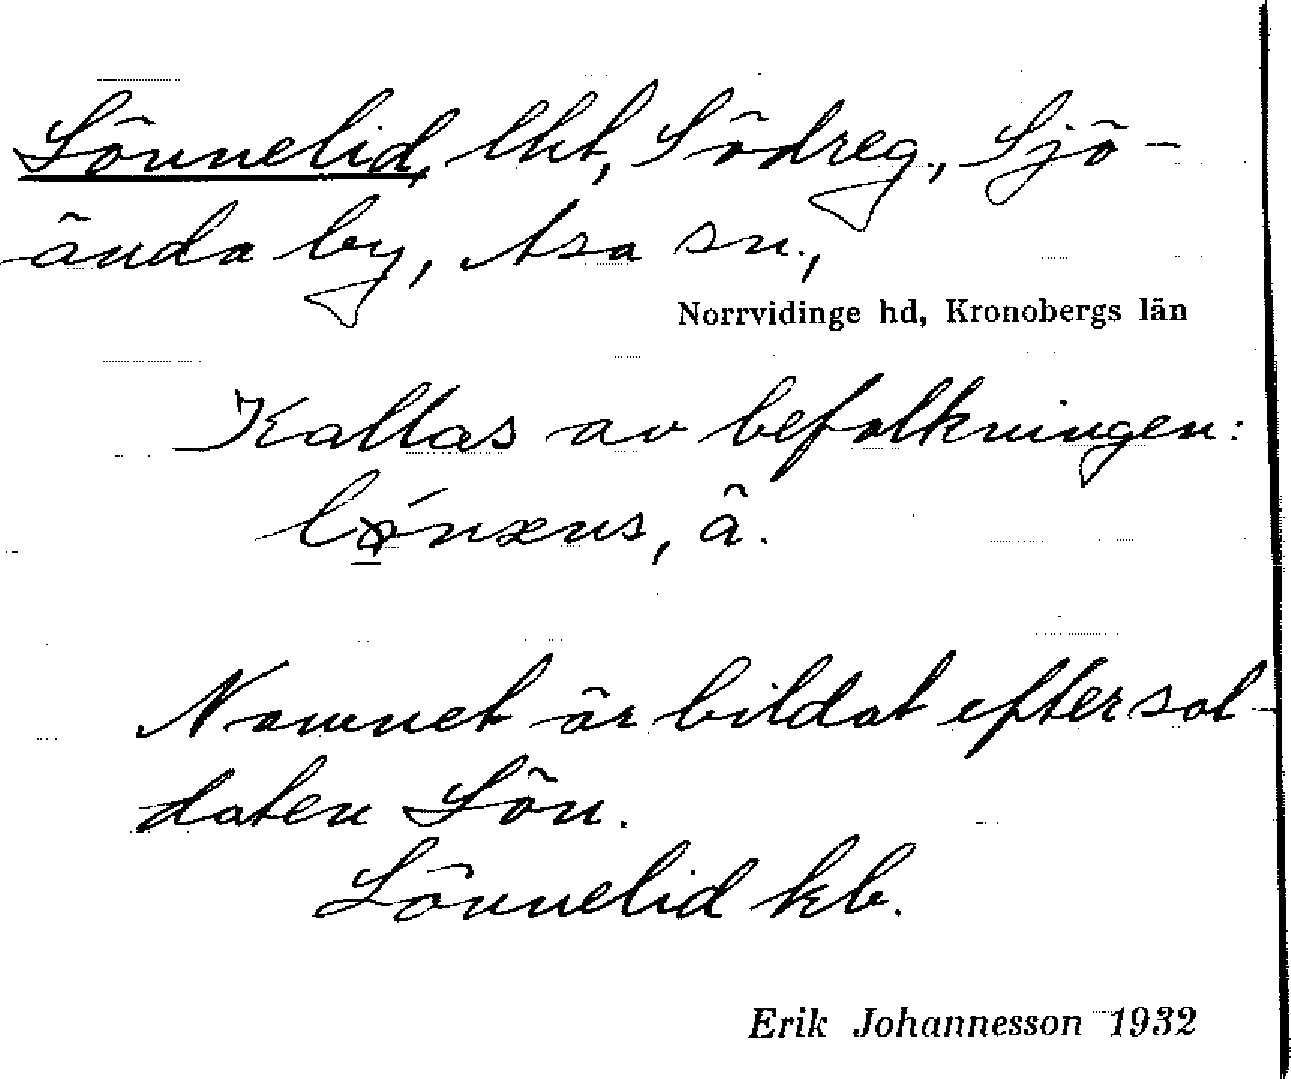 Lönnelid, lht, Södreg., Sjö-
ända by, Asa sn.,
Norrvidinge hd, Kronobergs län
Kallas av befolkningen:
lǿnæns, â.
Namnet är bildat efter sol-
daten Lön.
Lönnelid kb.
Erik Johannesson 1932